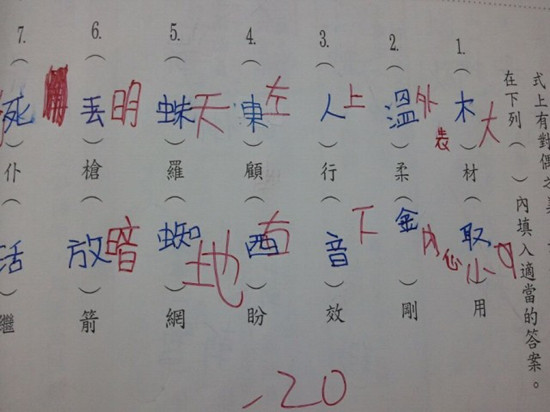 式上有對偶之美
在下列（　）內填入適當的答案。
1.（木）材（取）用
大 小
2.（溫）柔（金）剛
外表 內心
3.（人）行（音）效
上 下
4.（東）顧（西）盼
左 右
5.（蛛）羅（蜘）網
天 地
6.（丟）槍（放）箭
明 暗
7.（死）仆（活）繼
-20